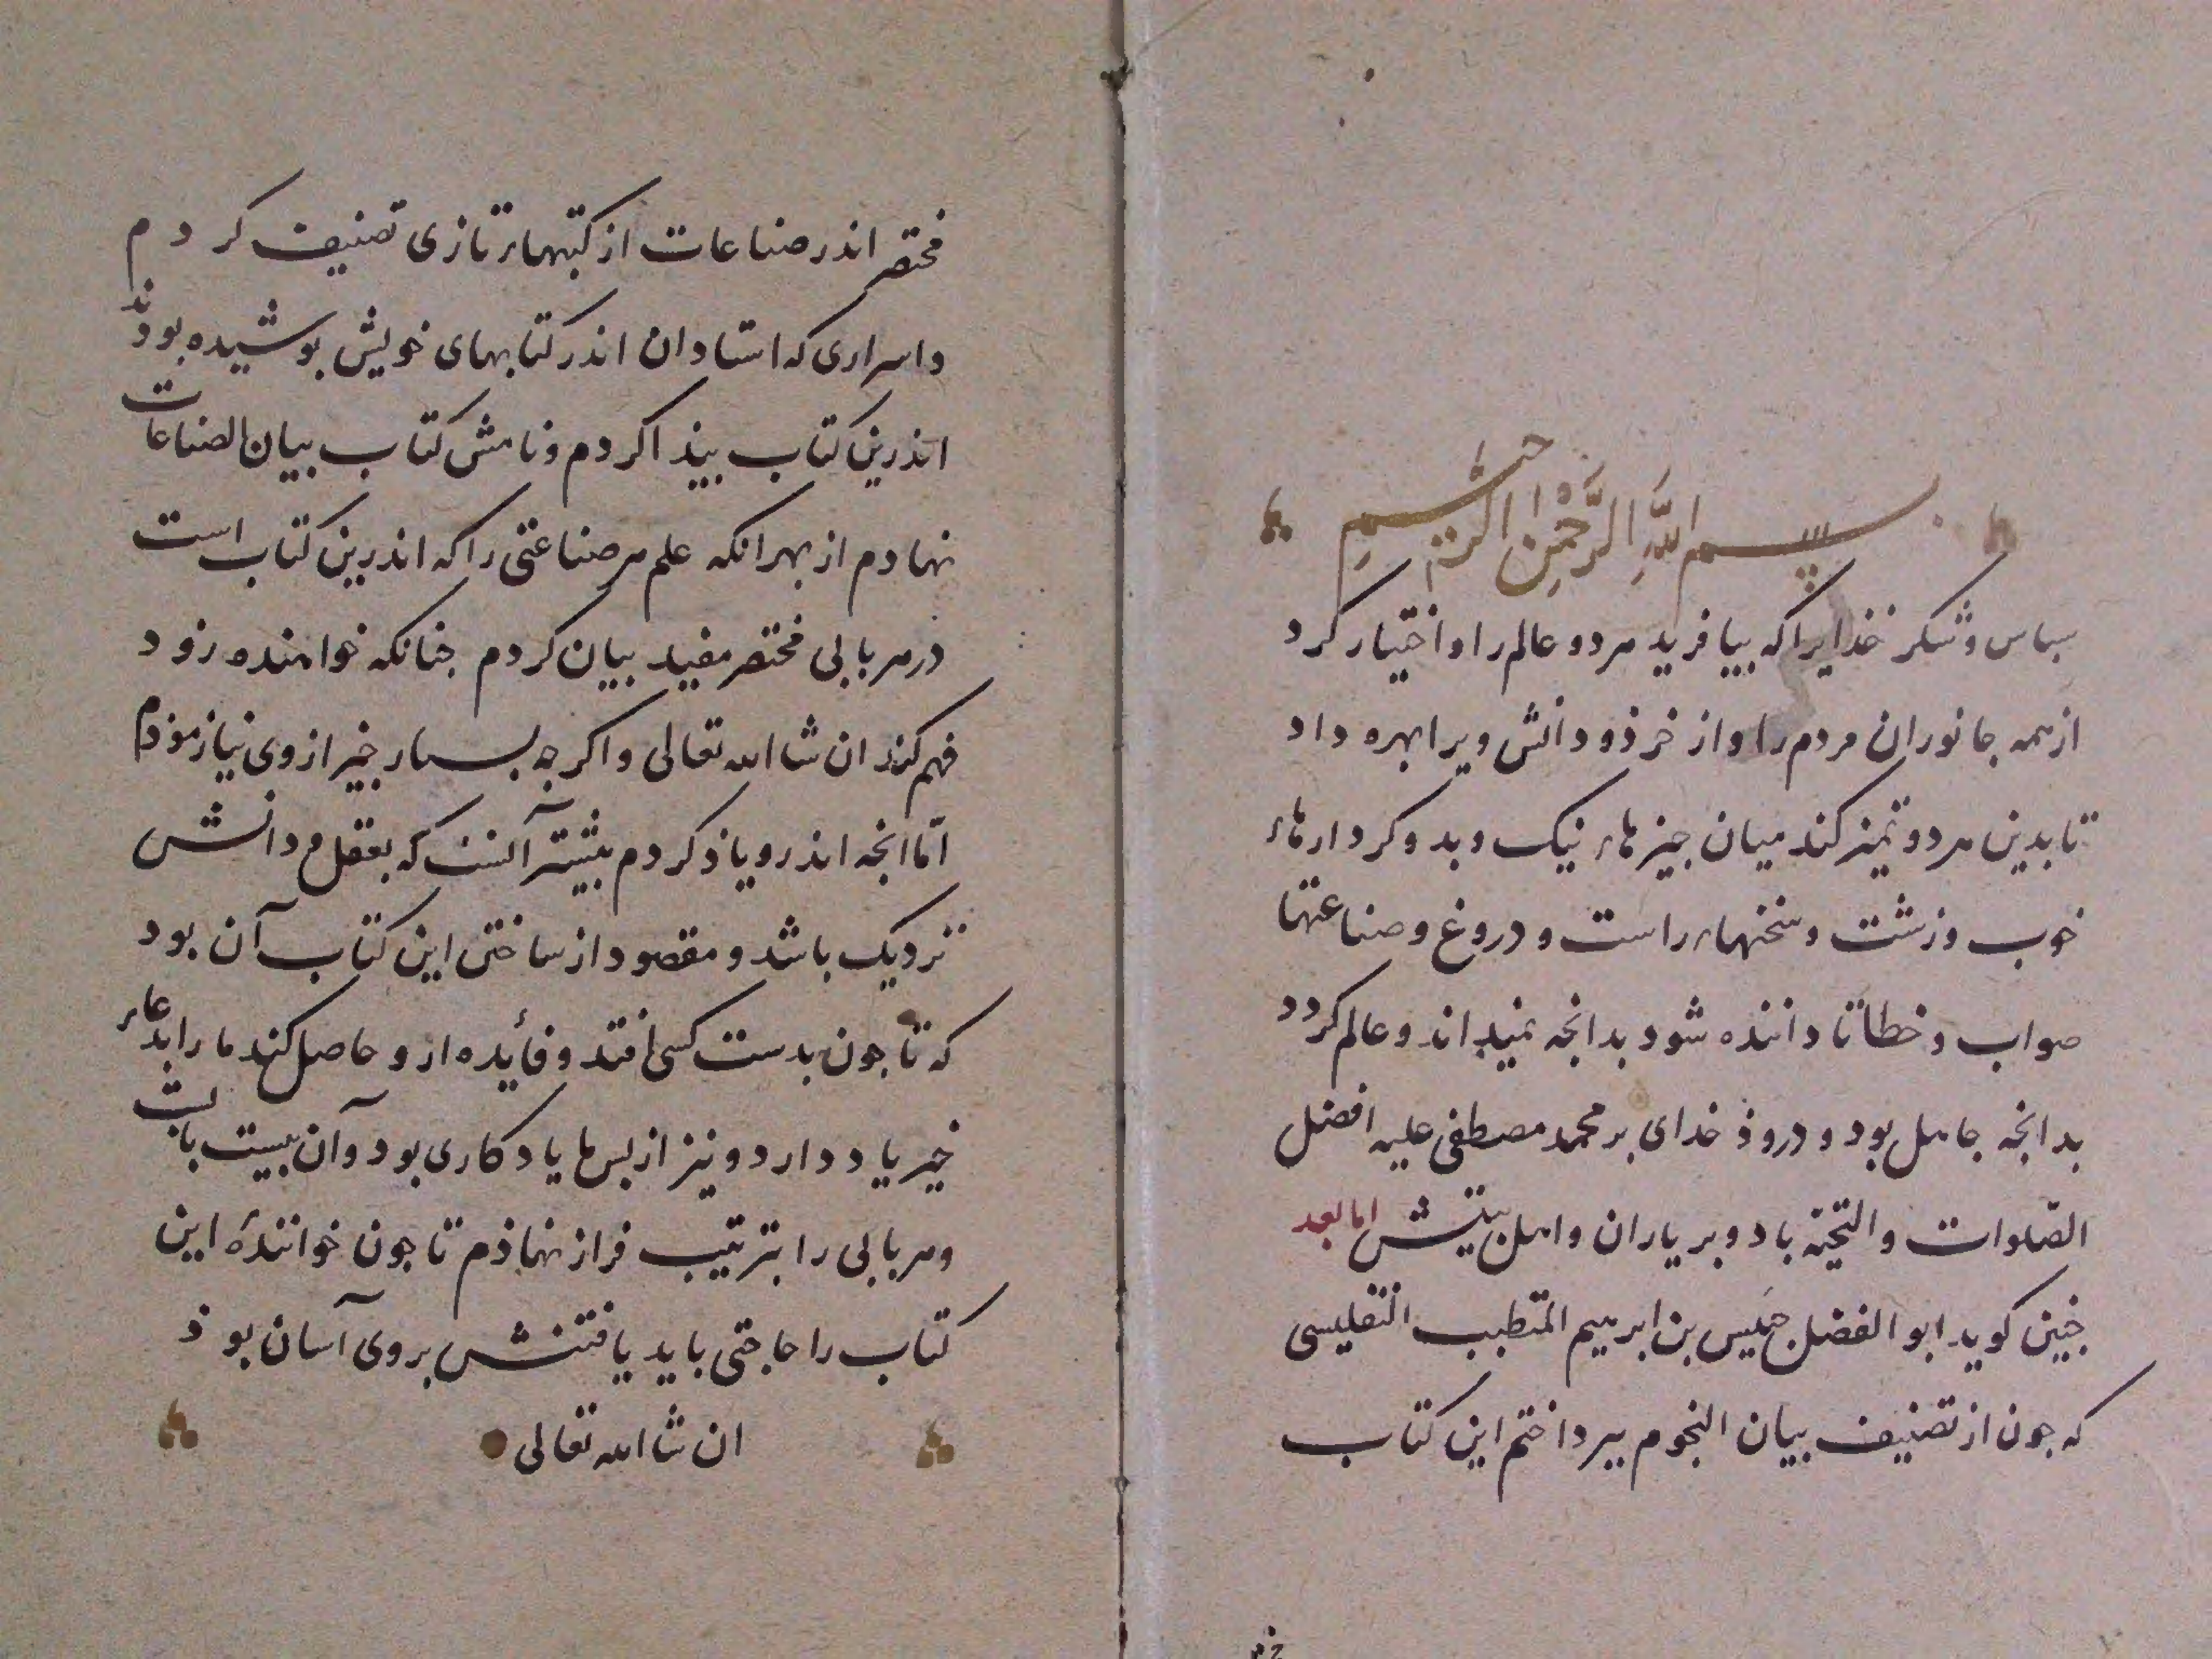 بسم الله الرحمن الرحیم
سباس و شکر خذایرا که بیافرید هر دو عالم را و اختیار کرد
از همه جانوران مردم را و از خرذ و دانش ویرا بهره داد
تا بدین هر دو تمیز کند میان جیزهاء نیک و بد و کردارهاء
خوب و زشت و سخنهاء راست و دروغ و صناعتها
صواب و خطا تا داننده شود بدانجه نمیداند و عالم کردد
بدانجه جاهل بود و دروذ خدای بر محمد مصطفی علیه افضل
الصّلوات و التحیّه باد و بر یاران و اهل بیتش اما بعد
جنین کوید ابو الفضل حبیس بن ابرهیم المتطبب التفلیسی
که جون از تصنیف بیان النجوم ببرداختم این کتاب
مختصر اندر صناعات از کتبهاء تازی تصنیف کردم
و اسراری که استادان اندر کتابهای خویش بوشیده بودند
اندرین کتاب بیذا کردم و نامش کتاب بیان الصناعات
نهادم از بهر انکه علم هر صناعتی را که اندرین کتاب است
در هر بابی مختصر مفید بیان کردم جنانکه خواهنده زود
فهم کند ان شا الله تعالی و اکر جه بسیار جیز از وی نیازموذم
امّا انجه اندرو یاذ کردم بیشتر آنست که بعقل و دانش
نزدیک باشد و مقصود از ساختن این کتاب آن بود
که تا جون بدست کسی افتد و فائده ازو حاصل کند ما را بدعاء
خیر یاد دارد و نیز از بس ما یادکاری بود و آن بیست باب است
و هر بابی را بترتیب فراز نهاذم تا جون خوانندهٔ این
کتاب را حاجتی باید یافتنش بر وی آسان بوذ
ان شا الله تعالی